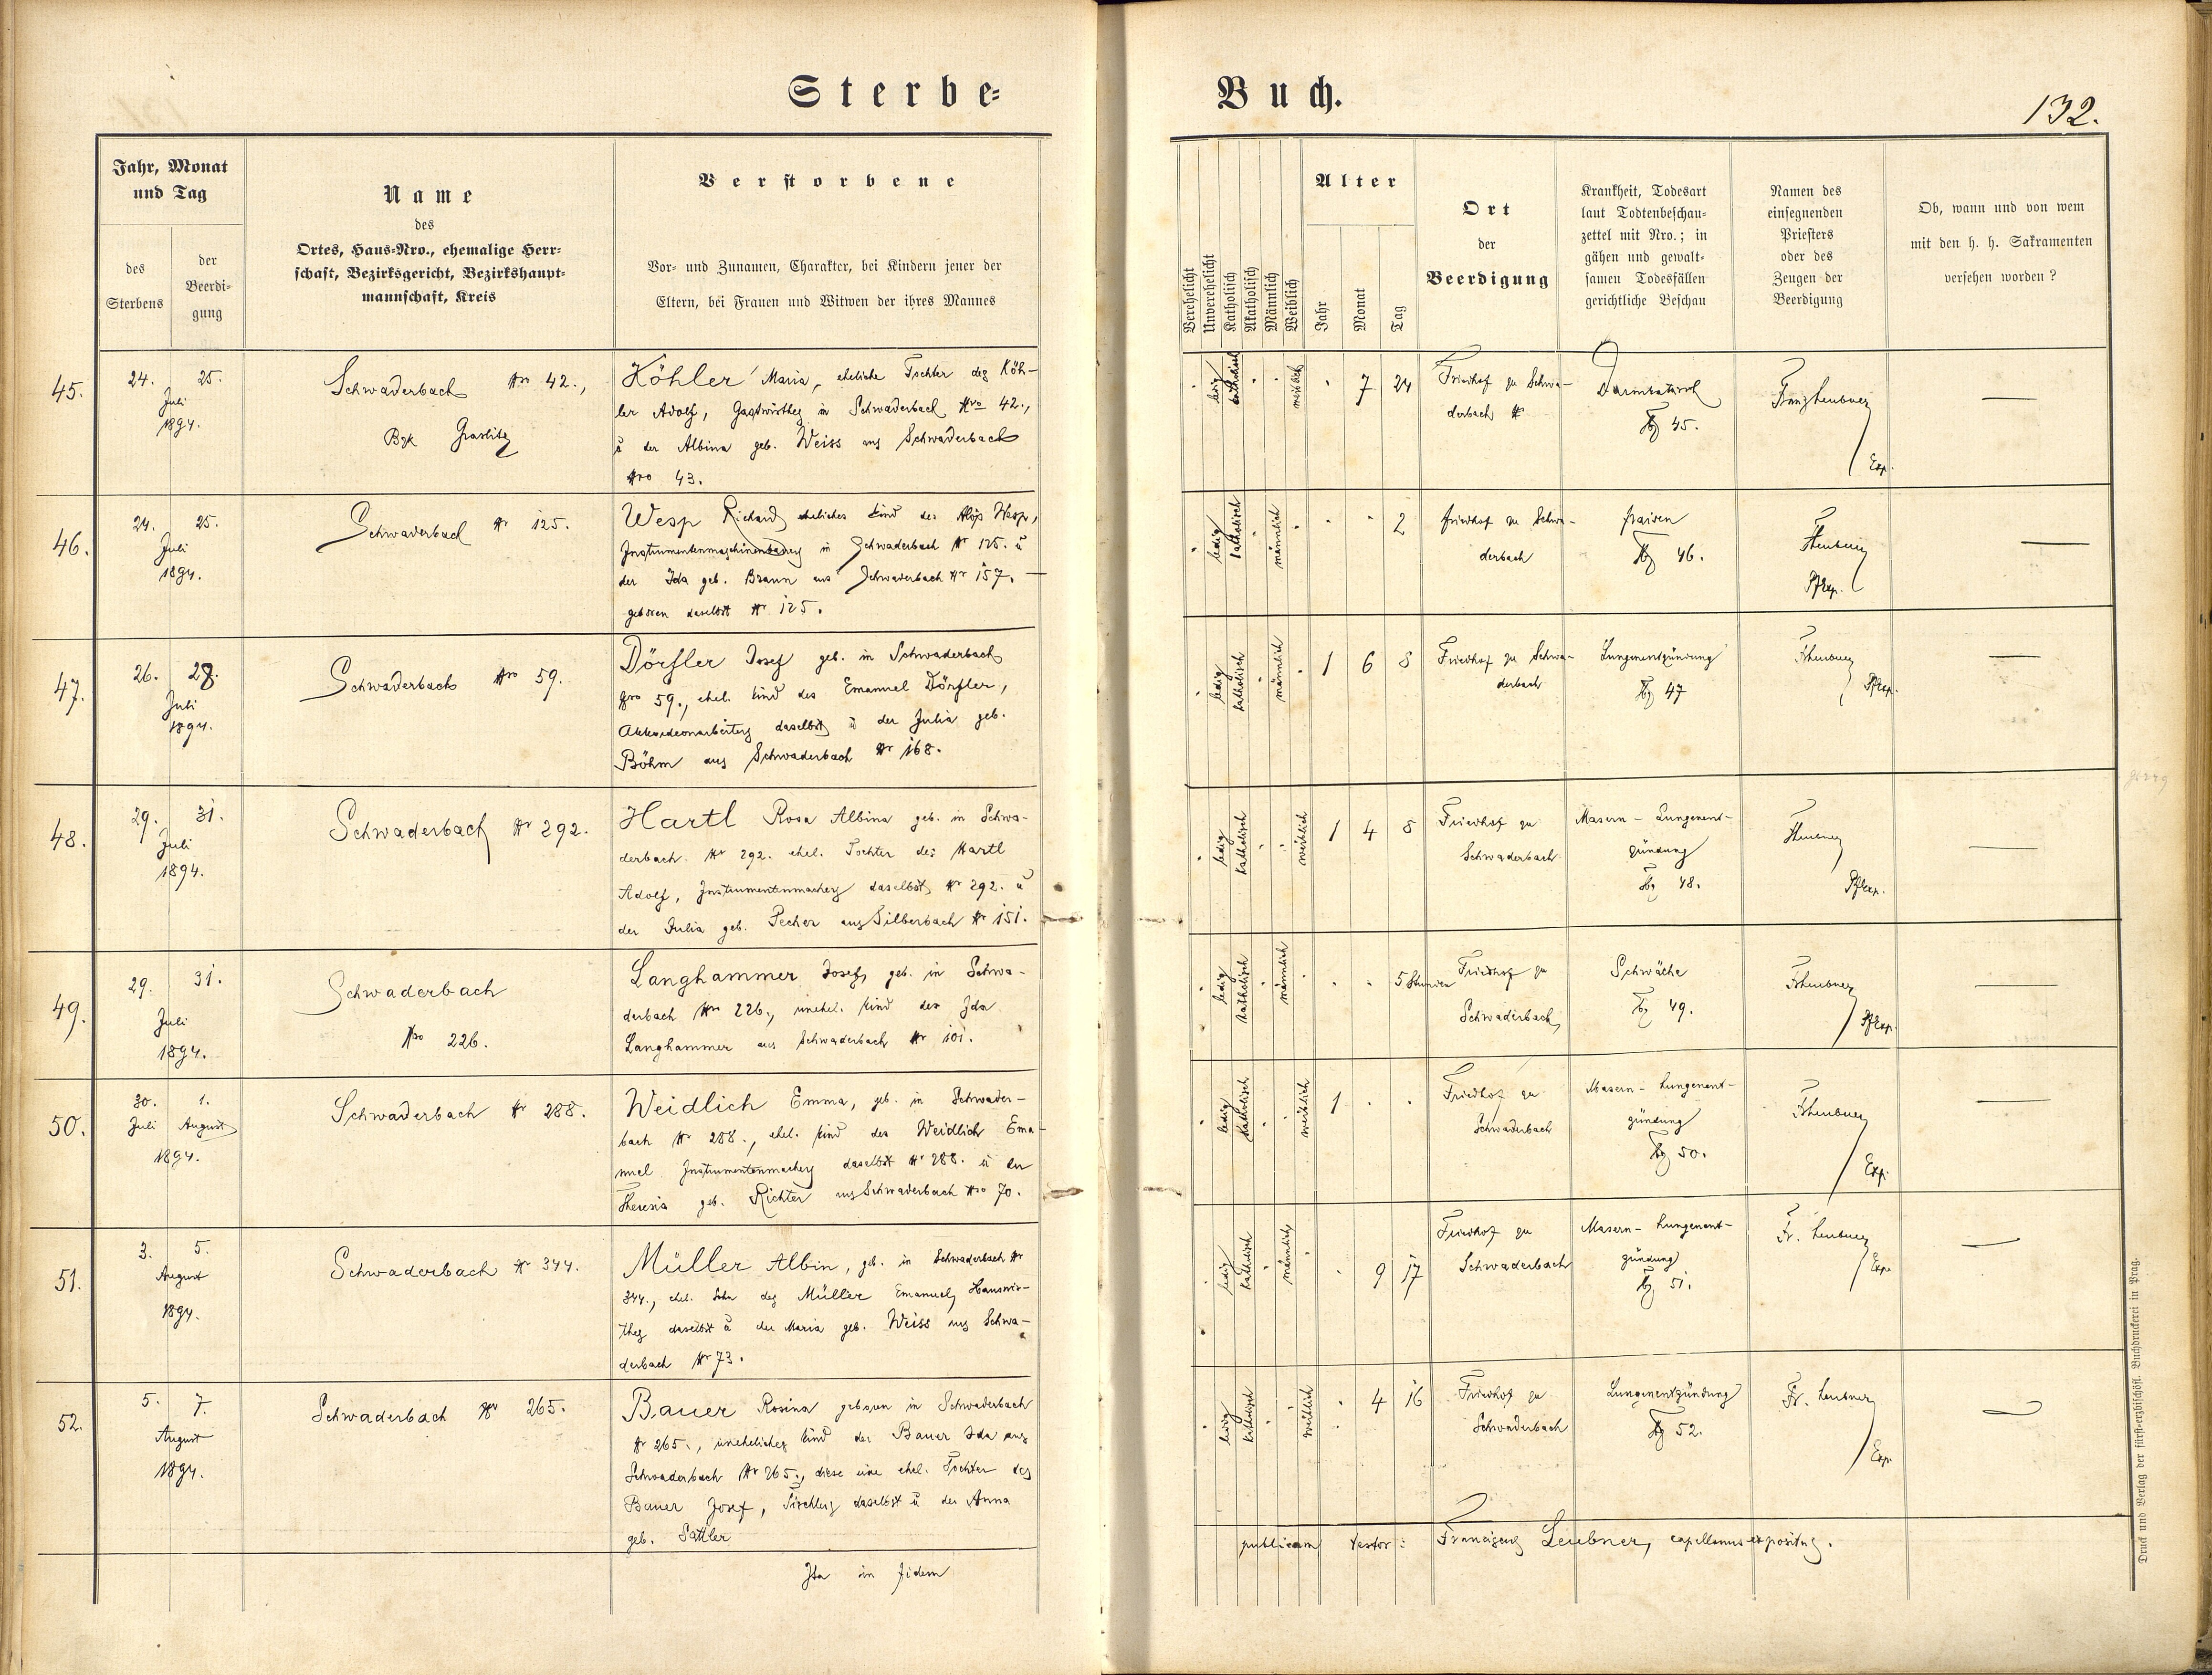 Sterbe=
Buch.
132.
Jahr, Monat
und Tag
des
Sterbens
der
Beerdi=
gung
Name
des
Ortes, Haus=Nro., ehemalige Herr=
schaft, Bezirksgericht, Bezirkshaupt=
mannschaft, Kreis
Verstorbene
Vor= und Zunamen, Charakter, bei Kindern jener der
Eltern, bei Frauen und Witwen der ihres Mannes
Verehelicht
Unverehelicht
Katholisch
Akatholisch
Männlich
Weiblich
Alter
Jahr
Monat
Tag
Ort
der
Beerdigung
Krankheit, Todesart
laut Todtenbeschau=
zettel mit Nro.; in
gähen und gewalt=
samen Todesfällen
gerichtliche Beschau
Namen des
einsegnenden
Priesters
oder des
Zeugen der
Beerdigung
Ob, wann und von wem
mit den h. h. Sakramenten
versehen worden?
45.
24. 25.
Juli
1894.
Schwaderbach Nro 42.,
Bzk Graslitz
Köhler Maria, eheliche Tochter des Köh-
ler Adolf, Gastwirthes in Schwaderbach Nro 42.,
u der Albina geb. Weiss aus Schwaderbach
Nro 43.
ledig
katholisch
weiblich
7 24
Friedhof zu Schwa-
derbach
Darmkatarrh
45.
Franz Leubner
Exp.
46.
24. 25.
Juli
1894.
Schwaderbach Nr 125.
Wesp Richard eheliches Kind des Alois Wesp,
Instrumentenmaschinenbauers in Schwaderbach Nr 125. u
der Ida geb. Braun aus Schwaderbach Nr 157. —
geboren daselbst Nr 125.
ledig
katholisch
männlich
2
Friedhof zu Schwa-
derbach
Fraisen
46.
FLeubner
Pfexp.
47.
26. 28.
Juli
1894.
Schwaderbach Nro 59.
Dörfler Josef geb. in Schwaderbach
Nro 59., ehel. Kind des Emanuel Dörfler,
Akkordeonarbeiters daselbst u der Julia geb.
Böhm aus Schwaderbach Nr 168.
ledig
katholisch
männlich
1 6 8
Friedhof zu Schwa-
derbach
Lungenentzündung
47
FLeubner
Pfexp.
48.
29. 31.
Juli
1894.
Schwaderbach Nr 292.
Hartl Rosa Albina geb. in Schwa-
derbach Nr 292. ehel. Tochter des Hartl
Adolf, Instrumentenmachers daselbst Nr 292. u
der Julia geb. Pecher aus Silberbach Nr 151.
ledig
katholisch
weiblich
1 4 8
Friedhof zu
Schwaderbach
Masern - Lungenent-
zündung
48.
FLeubner
Pfexp.
49.
29. 31.
Juli
1894.
Schwaderbach
Nro 226.
Langhammer Josef, geb. in Schwa-
derbach Nro 226., unehel. Kind der Ida
Langhammer aus Schwaderbach Nr 101.
ledig
katholisch
männlich
5 Stunden
Friedhof zu
Schwaderbach
Schwäche
49.
FLeubner
Pfexp.
50.
30. 1.
Juli August
1894.
Schwaderbach Nr 288.
Weidlich Emma, geb. in Schwader-
bach Nr 288., ehel. Kind des Weidlich Ema-
nuel Instrumentenmachers daselbst Nr 288. u der
Theresia geb. Richter aus Schwaderbach Nro 70.
ledig
katholisch
weiblich
1
Friedhof zu
Schwaderbach
Masern - Lungenent-
zündung
50.
FLeubner
Exp.
51.
3. 5.
August
1894.
Schwaderbach Nr 344.
Müller Albin, geb. in Schwaderbach Nr
344., ehel. Sohn des Müller Emanuel, Hauswir-
thes daselbst u der Maria geb. Weiss aus Schwa-
derbach Nr 73.
ledig
katholisch
männlich
9 17
Friedhof zu
Schwaderbach
Masern - Lungenent-
zündung
51.
Fr. Leubner
Exp.
52.
5. 7.
August
1894.
Schwaderbach Nr 265.
Bauer Rosina geboren in Schwaderbach
Nr 265., uneheliches Kind der Bauer Ida aus
Schwaderbach Nr 265., diese eine ehel. Tochter des
Bauer Josef, Tischlers daselbst u der Anna
geb. Sattler
ledig
katholisch
weiblich
4 16
Friedhof zu
Schwaderbach
Lungenentzündung
52.
Fr. Leubner
Exp.
Ita in fidem
publicam testor: Franciscus Leubner, capellanus expositus.
Druck und Verlag der fürst-erzbischöfl. Buchdruckerei in Prag.